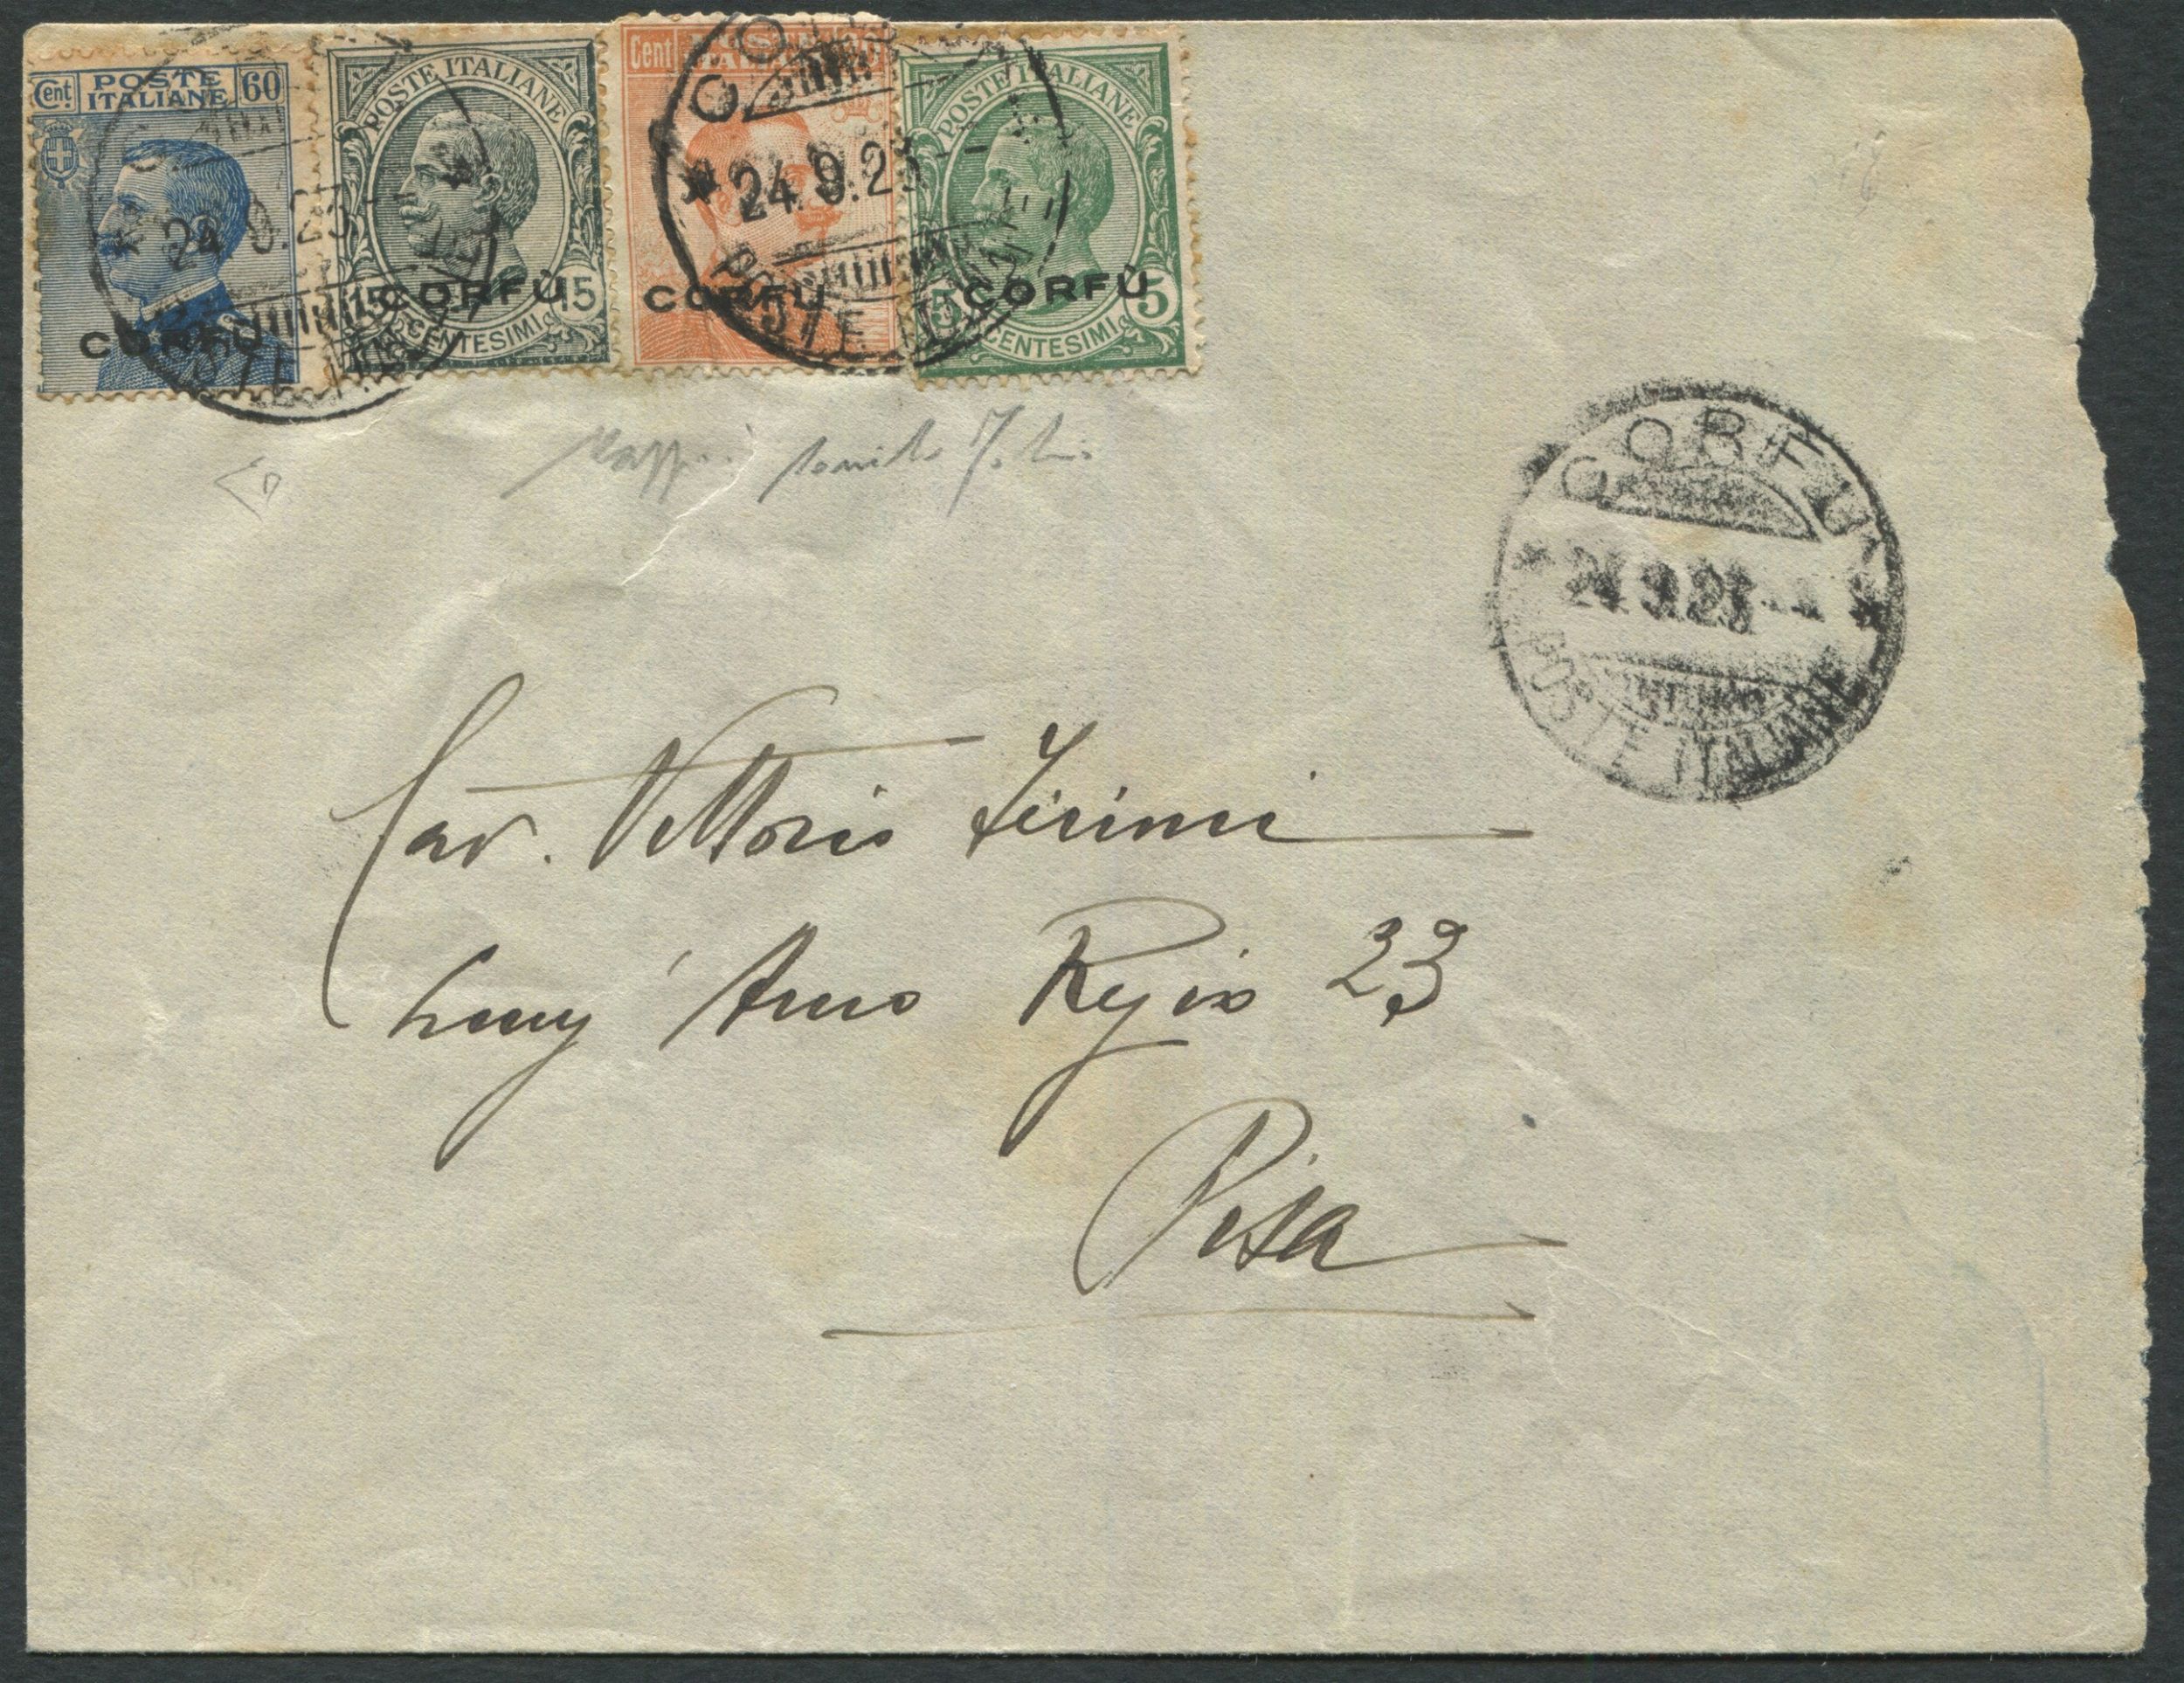 Cent. POSTE ITALIANE 60
CORFÙ
POSTE ITALIANE
15 CORFÙ 15
CENTESIMI
Cent POSTE ITALIANE 20
CORFÙ
POSTE ITALIANE
5 CORFÙ 5
CENTESIMI
24.9.23
CORFU
24.9.23
POSTE ITALIANE
CORFU
24.9.23
POSTE ITALIANE
Cav. Vittorio
Lung' Arno Regio 23
Pisa